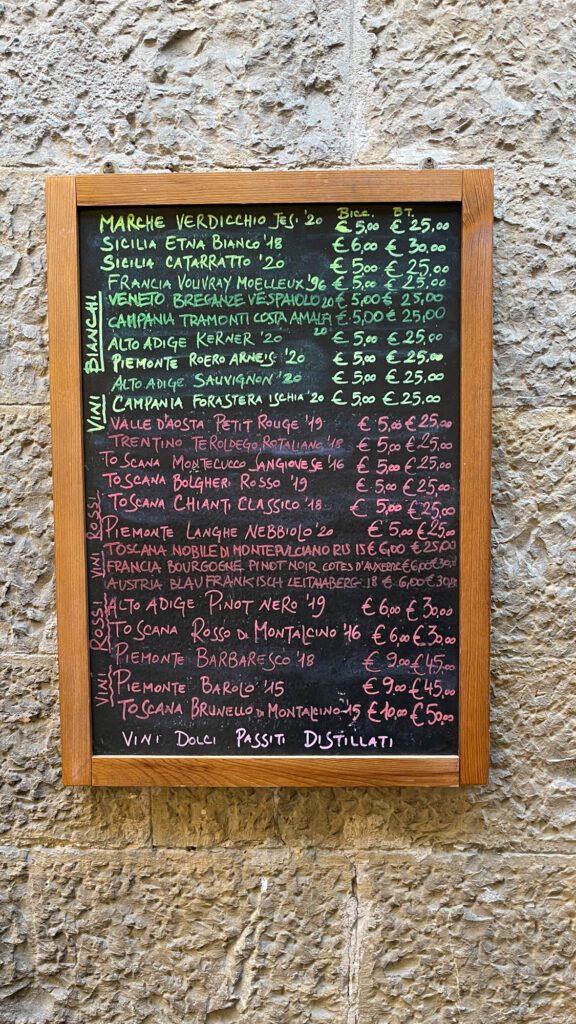 BICC. BT.
MARCHE VERDICCHIO JESI '20 € 5,00 € 25,00
SICILIA ETNA BIANCO '18 € 6,00 € 30,00
SICILIA CATARRATTO '20 € 5,00 € 25,00
FRANCIA VOUVRAY MOELLEUX '96 € 5,00 € 25,00
VENETO BREGANZE VESPAIOLO 20 € 5,00 € 25,00
CAMPANIA TRAMONTI COSTA AMALFI 20 € 5,00 € 25,00
ALTO ADIGE KERNER '20 € 5,00 € 25,00
PIEMONTE ROERO ARNEIS '20 € 5,00 € 25,00
ALTO ADIGE SAUVIGNON '20 € 5,00 € 25,00
CAMPANIA FORASTERA ISCHIA '20 € 5,00 € 25,00
VINI BIANCHI
VALLE D'AOSTA PETIT ROUGE '19 € 5,00 € 25,00
TRENTINO TEROLDEGO ROTALIANO '18 € 5,00 € 25,00
TOSCANA MONTECUCCO SANGIOVESE '16 € 5,00 € 25,00
TOSCANA BOLGHERI ROSSO '19 € 5,00 € 25,00
TOSCANA CHIANTI CLASSICO '18 € 5,00 € 25,00
PIEMONTE LANGHE NEBBIOLO '20 € 5,00 € 25,00
TOSCANA NOBILE DI MONTEPULCIANO RIS 15 € 6,00 € 25,00
VINI ROSSI
FRANCIA BOURGOGNE PINOT NOIR COTES D'AUXERRE € 6,00 € 30,00
AUSTRIA BLAUFRANKISCH LEITHABERG 18 € 6,00 € 30,00
ALTO ADIGE PINOT NERO '19 € 6,00 € 30,00
TOSCANA ROSSO DI MONTALCINO '16 € 6,00 € 30,00
PIEMONTE BARBARESCO '18 € 9,00 € 45,00
PIEMONTE BAROLO '15 € 9,00 € 45,00
TOSCANA BRUNELLO DI MONTALCINO 15 € 10,00 € 50,00
VINI ROSSI
VINI DOLCI PASSITI DISTILLATI